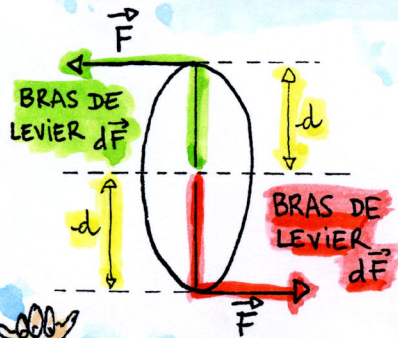 F
BRAS DE
LEVIER dF
d
d
BRAS DE
LEVIER
dF
F